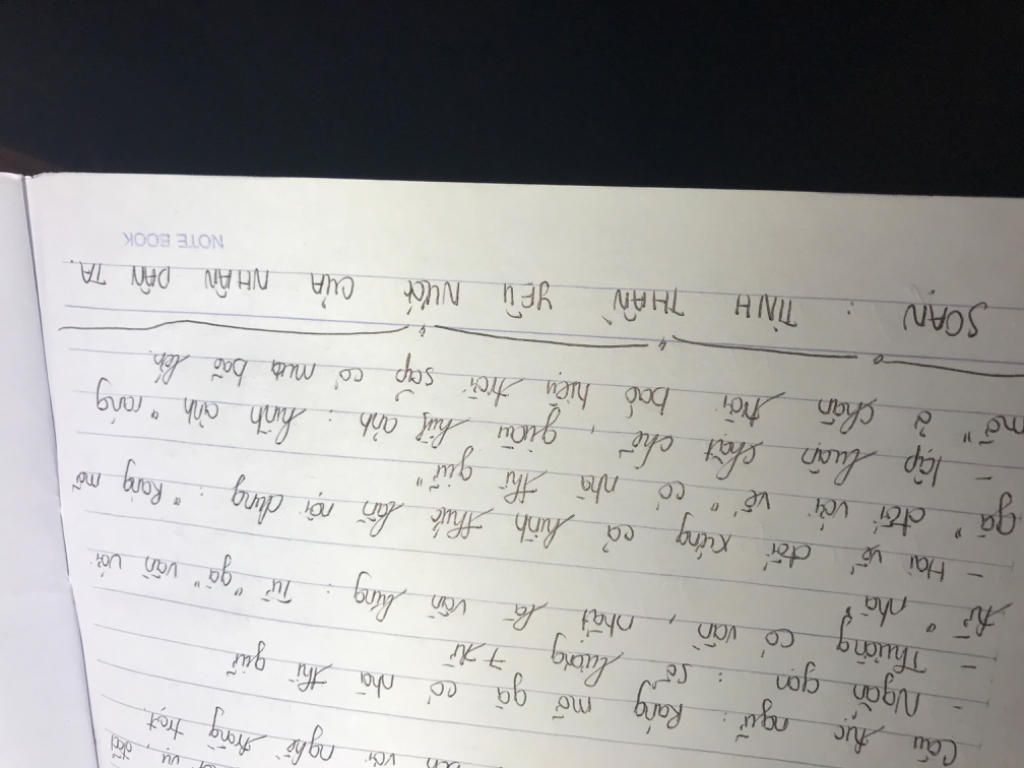 vụ,
với nghề trồng trọt.
Câu tục ngữ: Ráng mỡ gà có nhà thì giữ
- Ngắn gọn: số lượng 7 từ
- Thường có vần, nhất là vần lưng: Từ "gà" vần với
từ "nhà"
- Hai vế đối xứng cả hình thức lẫn nội dung: "Ráng mỡ
gà" đối với vế "có nhà thì giữ"
- lập luận chặt chẽ, giàu hình ảnh: hình ảnh "ráng
mỡ" ở chân trời báo hiệu trời sắp có mưa bão lớn.
SOẠN: TINH THẦN YÊU NƯỚC CỦA NHÂN DÂN TA.
NOTE BOOK